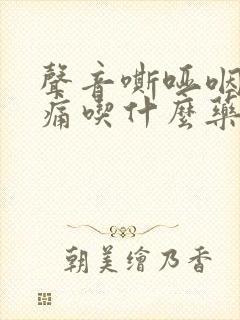 聲音嘶啞咽
痛喫什麼藥
朝美繪乃香